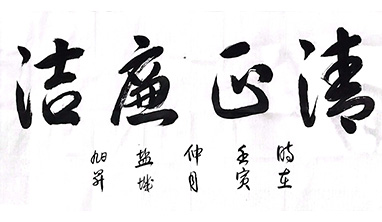 清正廉洁
時在
壬寅
仲月
盐城
旭昇